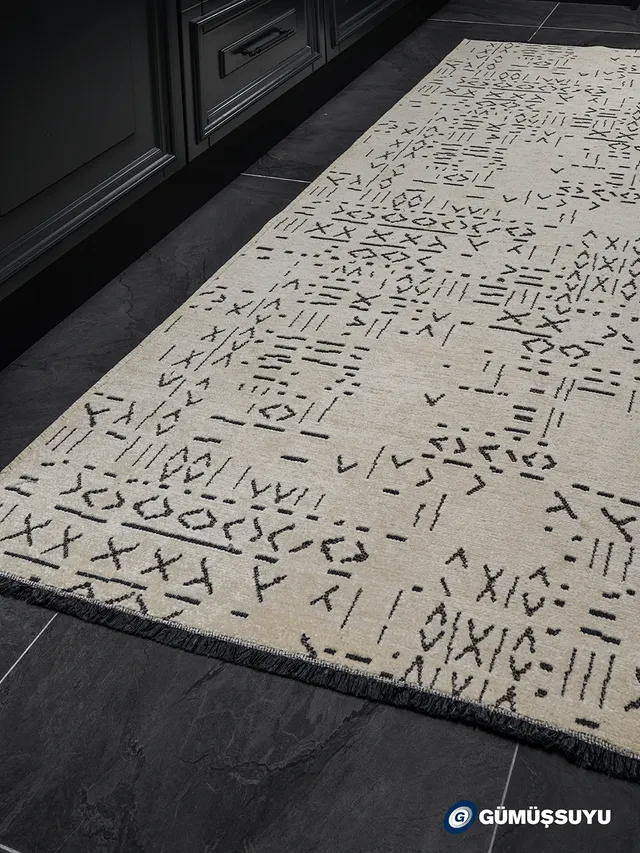 G GÜMÜŞSUYU